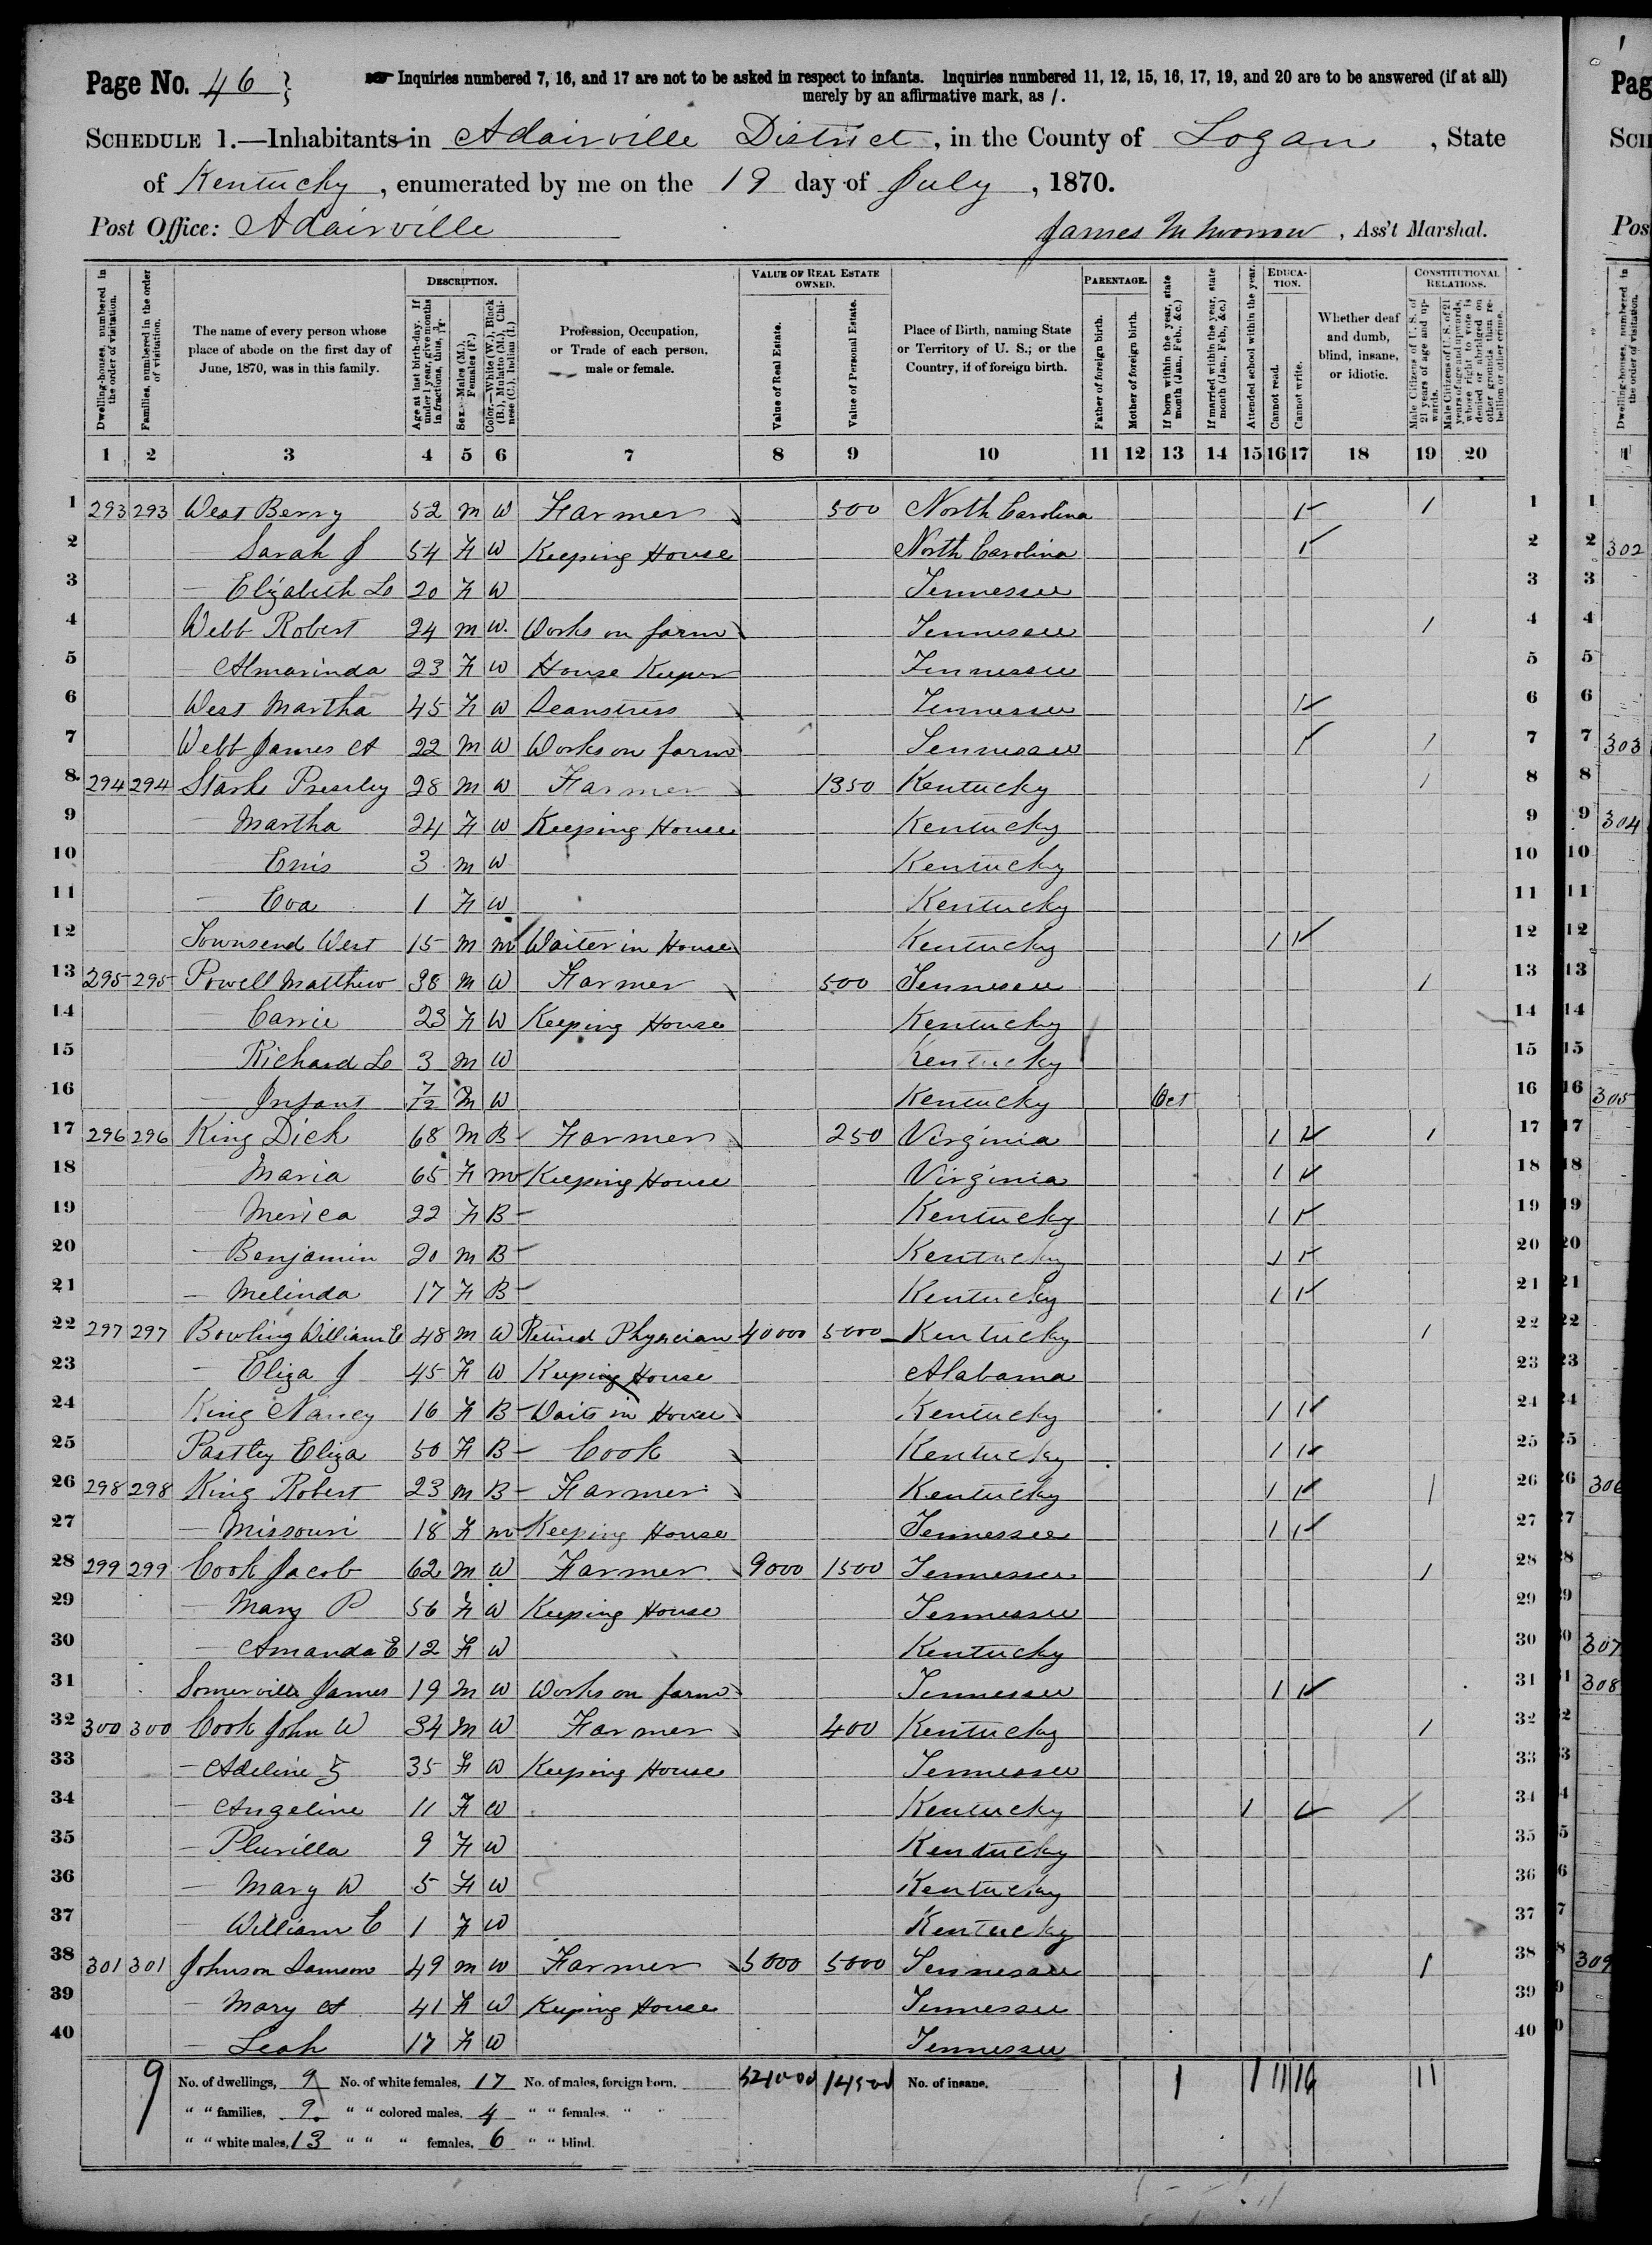 Page No. 46
Inquiries numbered 7, 16, and 17 are not to be asked in respect to infants. Inquiries numbered 11, 12, 15, 16, 17, 19, and 20 are to be answered (if at all)
merely by an affirmative mark, as /.
SCHEDULE 1.—Inhabitants in Adairville District, in the County of Logan, State
of Kentucky, enumerated by me on the 19 day of July, 1870.
Post Office: Adairville
James M Morrow, Ass't Marshal.
Dwelling-houses, numbered in the order of visitation.
Families, numbered in the order of visitation.
The name of every person whose place of abode on the first day of June, 1870, was in this family.
DESCRIPTION.
Age at last birth-day. If under 1 year, give months in fractions, thus, 3/12.
Sex.—Males (M.), Females (F.)
Color.—White (W.), Black (B.), Mulatto (M.), Chinese (C.), Indian (I.)
Profession, Occupation, or Trade of each person, male or female.
VALUE OF REAL ESTATE OWNED.
Value of Real Estate.
Value of Personal Estate.
Place of Birth, naming State or Territory of U. S.; or the Country, if of foreign birth.
PARENTAGE.
Father of foreign birth.
Mother of foreign birth.
If born within the year, state month (Jan., Feb., &c.)
If married within the year, state month (Jan., Feb., &c.)
Attended school within the year.
EDUCATION.
Cannot read.
Cannot write.
Whether deaf and dumb, blind, insane, or idiotic.
CONSTITUTIONAL RELATIONS.
Male Citizens of U. S. of 21 years of age and upwards.
Male Citizens of U. S. of 21 years of age and upwards, whose right to vote is denied or abridged on other grounds than rebellion or other crime.
1 2 3 4 5 6 7 8 9 10 11 12 13 14 15 16 17 18 19 20
1 293 293 West Berry 52 M W Farmer 500 North Carolina 1 1 1
2 — Sarah J 54 F W Keeping House North Carolina 1 2
3 — Elizabeth L 20 F W Tennessee 3
4 Webb Robert 24 M W Works on farm Tennessee 1 4
5 — Almarinda 23 F W House Keeper Tennessee 5
6 West Martha 45 F W Seamstress Tennessee 1 6
7 Webb James A 22 M W Works on farm Tennessee 1 1 7
8 294 294 Stark Pressley 28 M W Farmer 1350 Kentucky 1 8
9 — Martha 24 F W Keeping House Kentucky 9
10 — Enis 3 M W Kentucky 10
11 — Eva 1 F W Kentucky 11
12 Townsend West 15 M M Waiter in House Kentucky 1 1 12
13 295 295 Powell Matthew 38 M W Farmer 500 Tennessee 1 13
14 — Carrie 23 F W Keeping House Kentucky 14
15 — Richard L 3 M W Kentucky 15
16 — Infant 7/12 M W Kentucky Oct 16
17 296 296 King Dick 68 M B Farmer 250 Virginia 1 1 1 17
18 — Maria 65 F M Keeping House Virginia 1 1 18
19 — Merica 22 F B Kentucky 1 1 19
20 — Benjamin 20 M B Kentucky 1 1 20
21 — Melinda 17 F B Kentucky 1 1 21
22 297 297 Bowling William E 48 M W Retired Physician 40000 5000 Kentucky 1 22
23 — Eliza J 45 F W Keeping House Alabama 23
24 King Nancy 16 F B Waits in House Kentucky 1 1 24
25 Pastley Eliza 50 F B Cook Kentucky 1 1 25
26 298 298 King Robert 23 M B Farmer Kentucky 1 1 1 26
27 — Missouri 18 F M Keeping House Tennessee 1 1 27
28 299 299 Cook Jacob 62 M W Farmer 9000 1500 Tennessee 1 28
29 — Mary P 56 F W Keeping House Tennessee 29
30 — Amanda E 12 F W Kentucky 30
31 Somerville James 19 M W Works on farm Tennessee 1 1 31
32 300 300 Cook John W 34 M W Farmer 400 Kentucky 1 32
33 — Adeline 35 F W Keeping House Tennessee 33
34 — Angeline 11 F W Kentucky 1 1 34
35 — Plurilla 9 F W Kentucky 35
36 — Mary W 5 F W Kentucky 36
37 — William C 1 F W Kentucky 37
38 301 301 Johnson Samson 49 M W Farmer 5000 5000 Tennessee 1 38
39 — Mary A 41 F W Keeping House Tennessee 39
40 — Leah 17 F W Tennessee 40
9 No. of dwellings, 9 No. of white females, 17 No. of males, foreign born, 54000 14500 No. of insane, 1 1 11 16 11
" " families, 9 " " colored males, 4 " " females, "
" " white males, 13 " " " females, 6 " " blind.
Pag
SCH
Pos
302
303
304
305
306
307
308
309